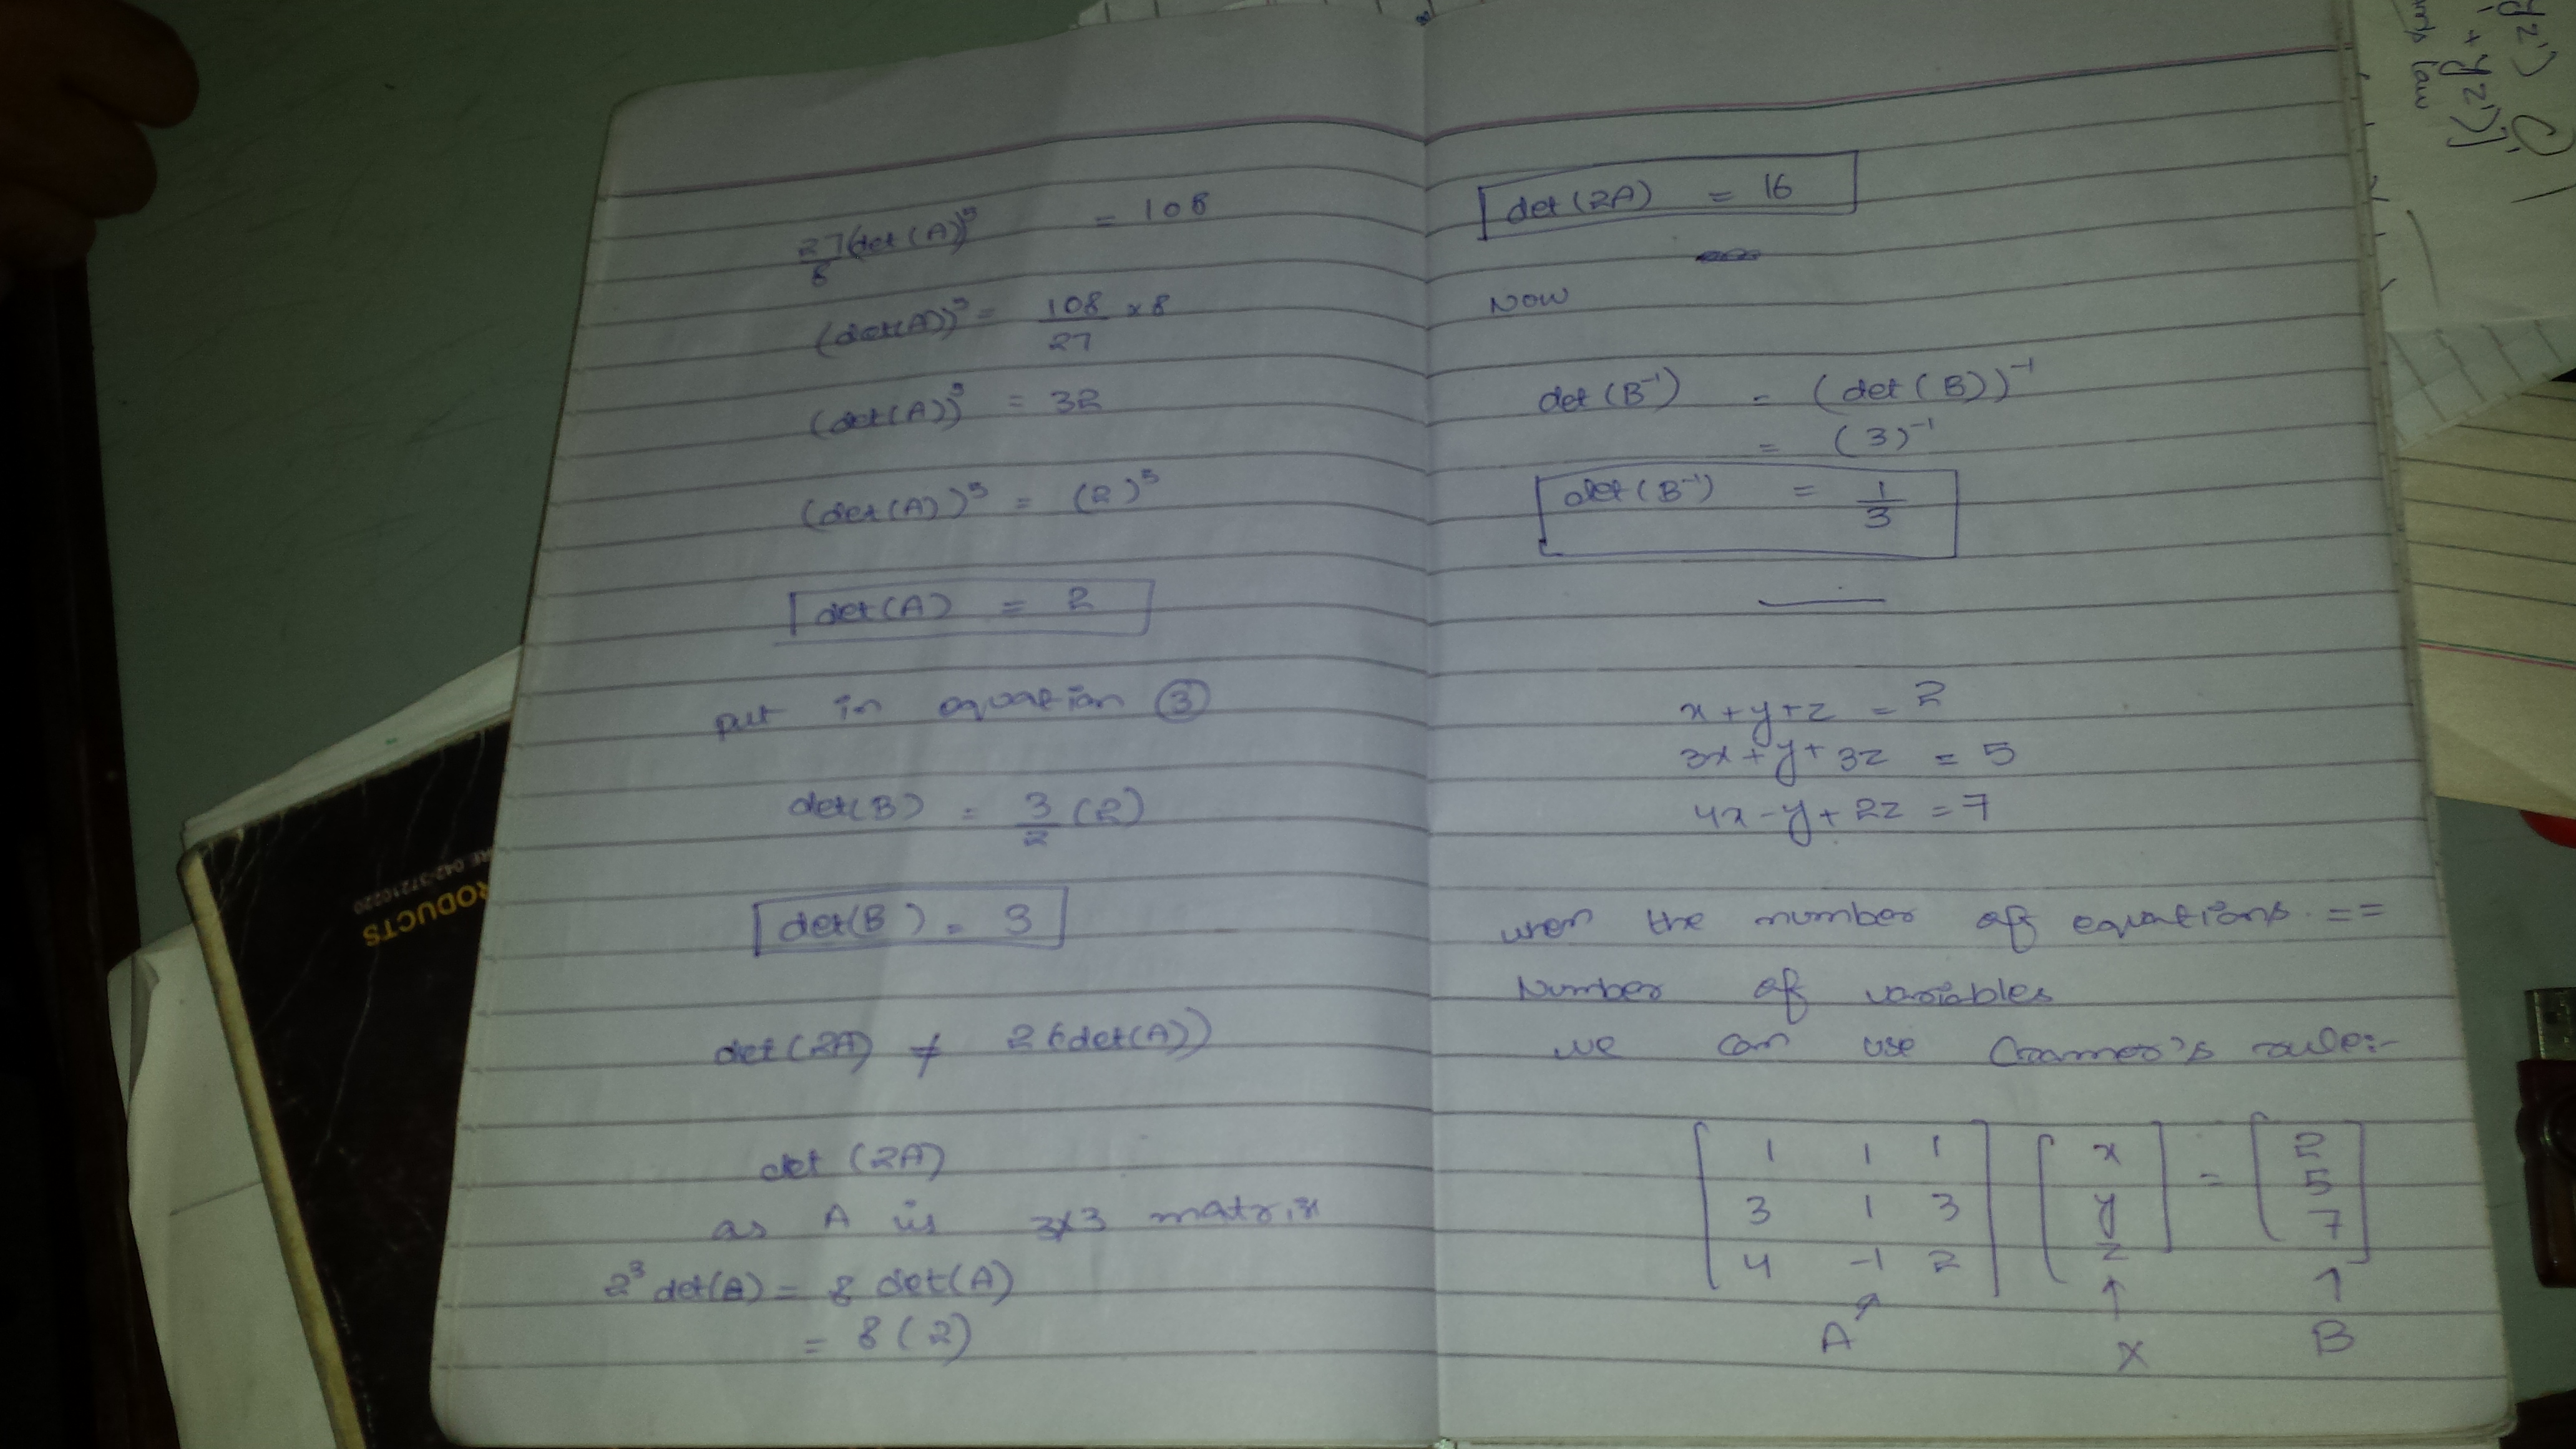 27/8 (det(A))⁵ = 108
(det(A))⁵ = 108/27 × 8
(det(A))⁵ = 32
(det(A))⁵ = (2)⁵
det(A) = 2
put in equation ③
det(B) = 3/2 (2)
det(B) = 3
det(2A) ≠ 2(det(A))
det (2A)
as A is 3x3 matrix
2³ det(A) = 8 det(A)
= 8(2)
det(2A) = 16
Now
det(B⁻¹) = (det(B))⁻¹
= (3)⁻¹
det(B⁻¹) = 1/3
x+y+z = 2
3x+y+3z = 5
4x-y+2z = 7
when the number of equations ==
Number of variables
we can use Cramer's rule:-
[1 1 1] [x] = [2]
[3 1 3] [y] [5]
[4 -1 2] [z] [7]
↗ ↑ ↑
A X B
RODUCTS
RE 042-37210220
yz')
+ yz')]
law